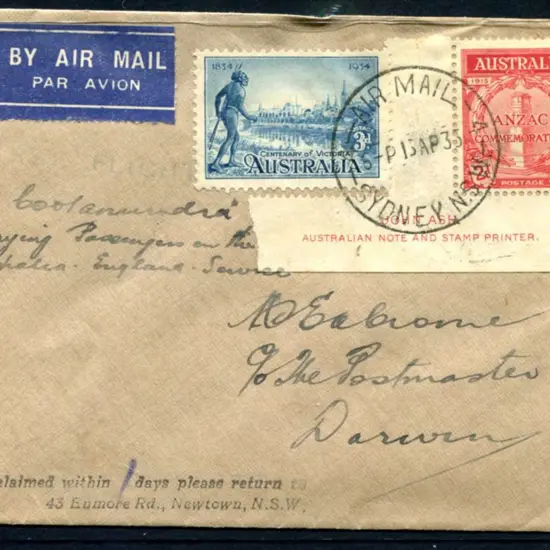 BY AIR MAIL
PAR AVION
1834 1934
3D
CENTENARY OF VICTORIA
AUSTRALIA
AIR MAIL
13 AP 35
SYDNEY N.S.
AUSTRAL
1915
ANZAC
COMMEMORAT
2
POSTAGE
JOHN ASH
AUSTRALIAN NOTE AND STAMP PRINTER.
Cootamundra
Passengers on the
England Service
c/o The Postmaster
Darwin
claimed within 1 days please return to
43 Enmore Rd., Newtown, N.S.W.